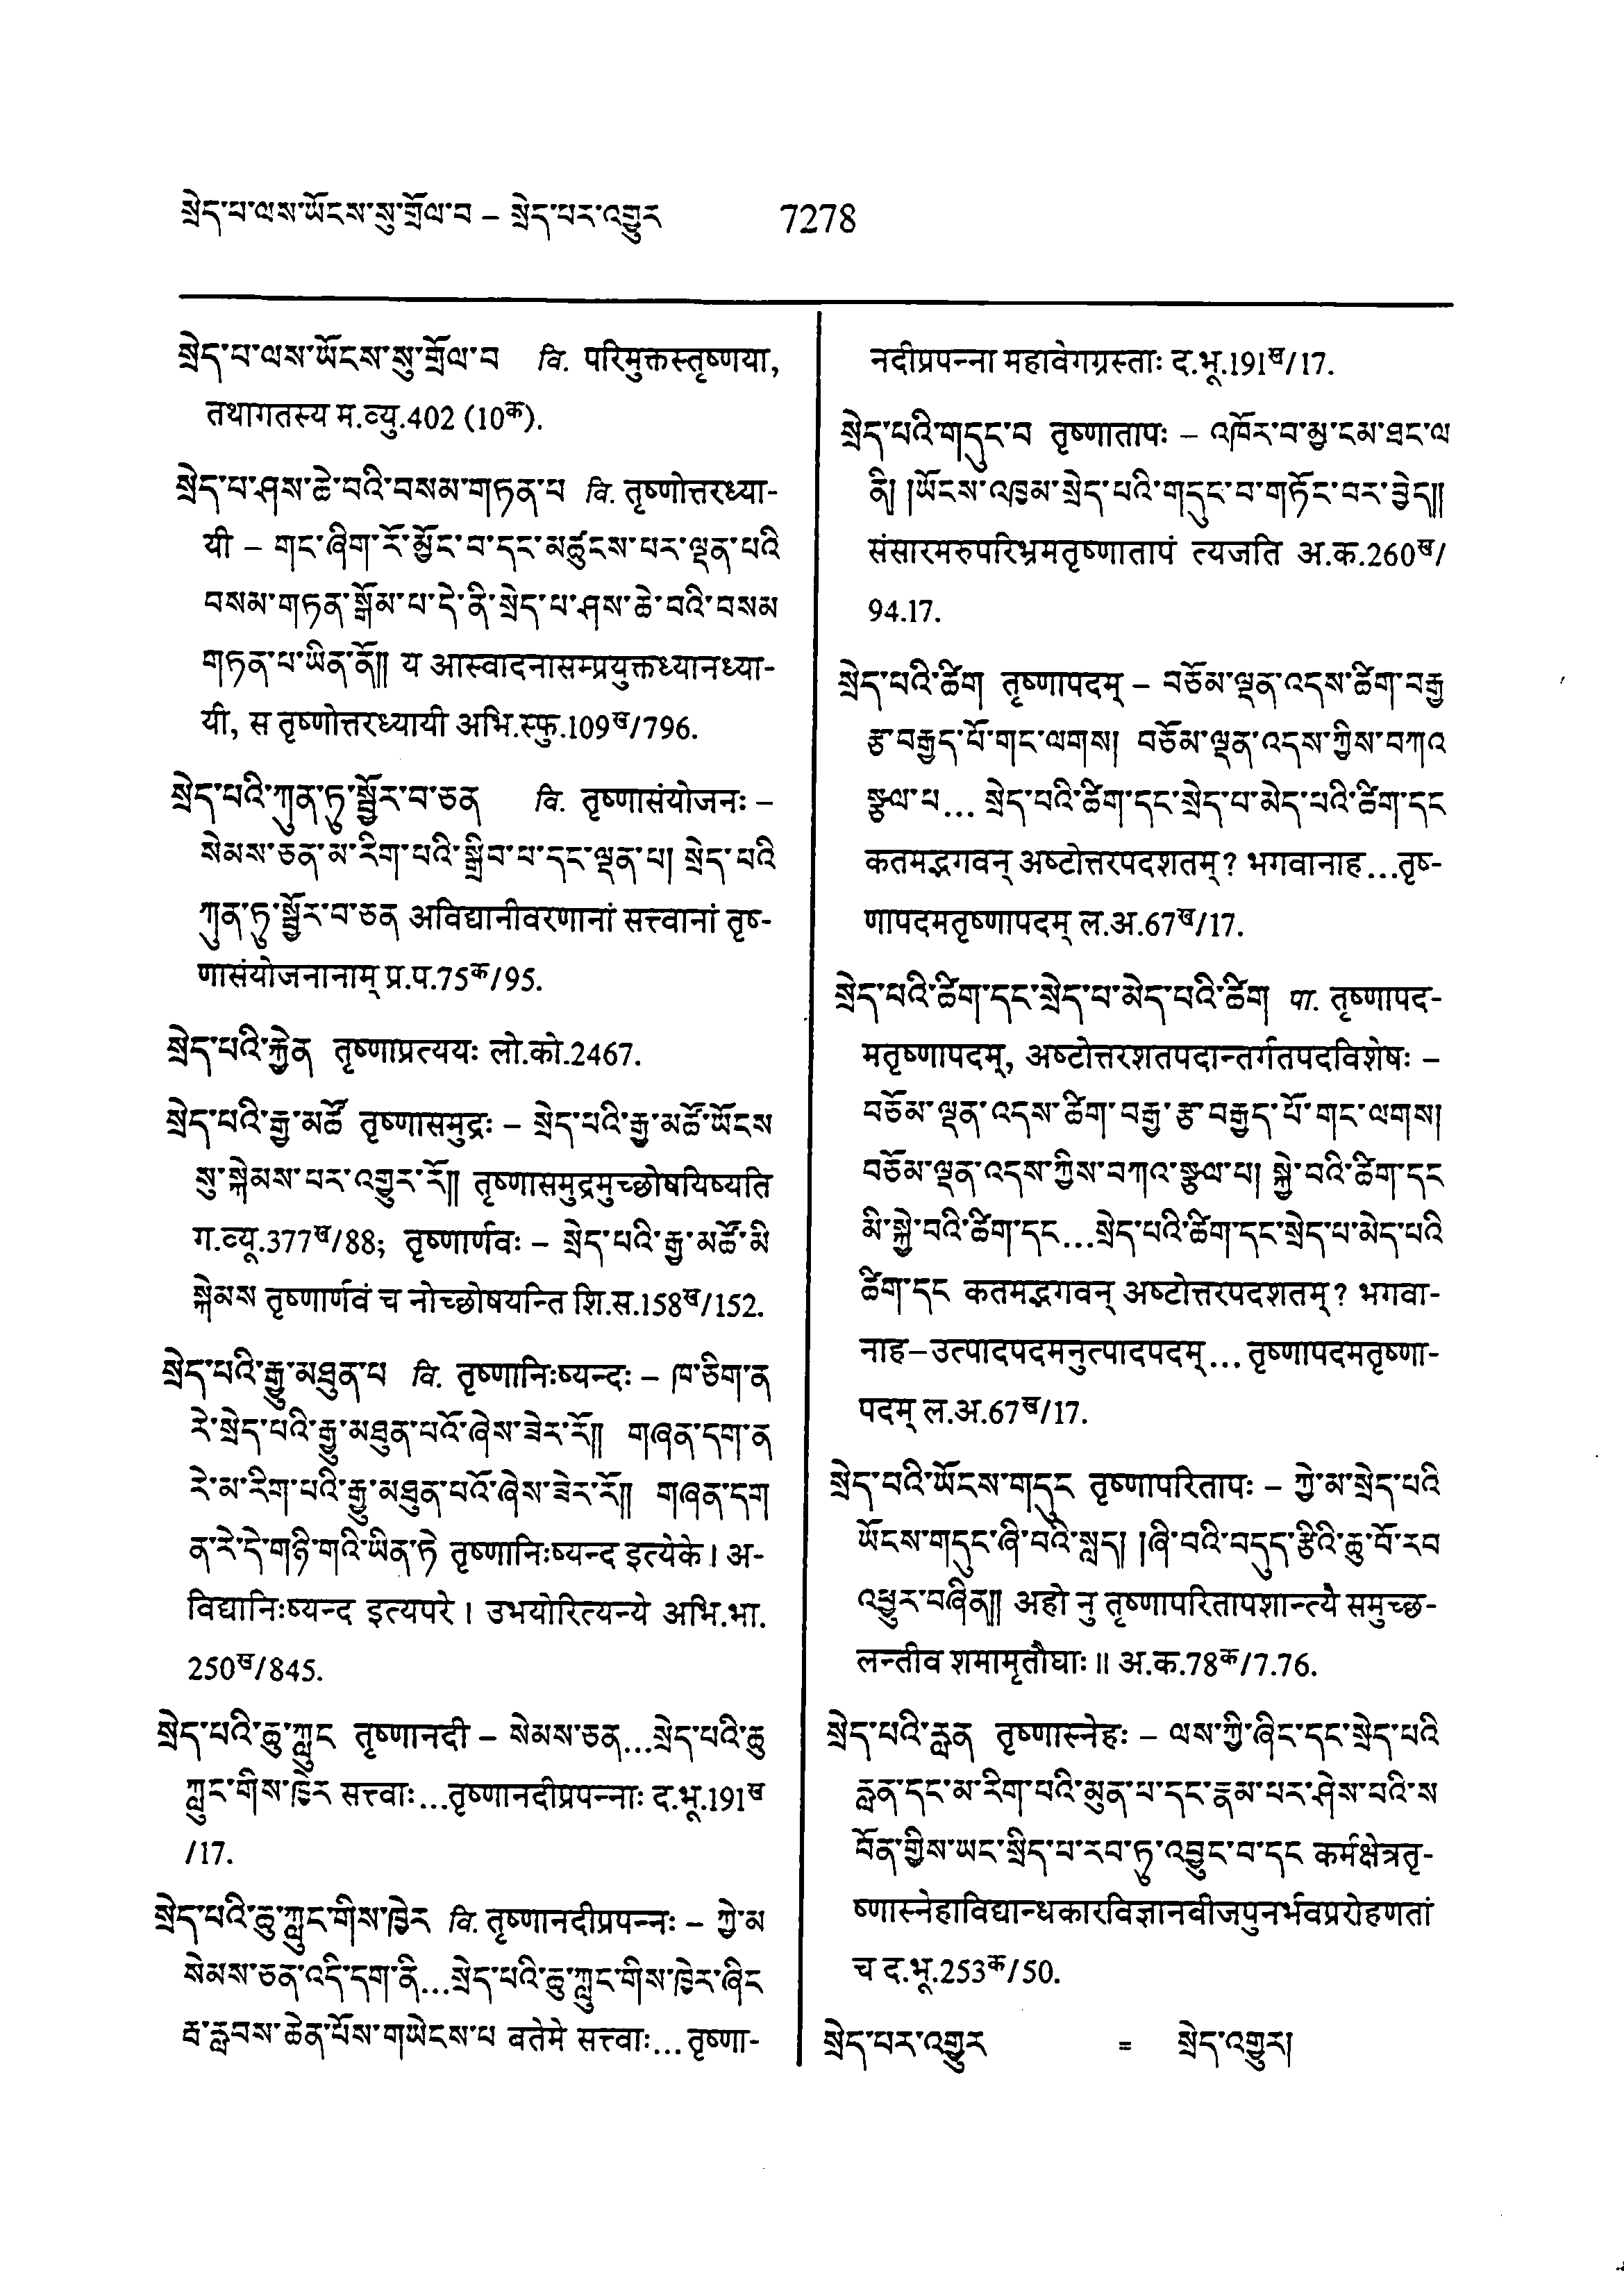 སྲེད་པ་ལས་ཡོངས་སུ་གྲོལ་བ – སྲེད་པར་འགྱུར 7278
སྲེད་པ་ལས་ཡོངས་སུ་གྲོལ་བ वि. परिमुक्तस्तृष्णया,
तथागतस्य म.व्यु.402 (10क).
སྲེད་པ་ཤས་ཆེ་བའི་བསམ་གཏན་པ वि. तृष्णोत्तरध्या-
यी – གང་ཞིག་རོ་མྱོང་བ་དང་མཚུངས་པར་ལྡན་པའི
བསམ་གཏན་སྒོམ་པ་དེ་ནི་སྲེད་པ་ཤས་ཆེ་བའི་བསམ
གཏན་པ་ཡིན་ནོ།། य आस्वादनासम्प्रयुक्तध्यानध्या-
यी, स तृष्णोत्तरध्यायी अभि.स्फु.109ख/796.
སྲེད་པའི་ཀུན་ཏུ་སྦྱོར་བ་ཅན वि. तृष्णासंयोजनः –
སེམས་ཅན་མ་རིག་པའི་སྒྲིབ་པ་དང་ལྡན་པ། སྲེད་པའི
ཀུན་ཏུ་སྦྱོར་བ་ཅན अविद्यानीवरणानां सत्त्वानां तृष्-
णासंयोजनानाम् प्र.प.75क/95.
སྲེད་པའི་རྐྱེན तृष्णाप्रत्ययः लो.को.2467.
སྲེད་པའི་རྒྱ་མཚོ तृष्णासमुद्रः – སྲེད་པའི་རྒྱ་མཚོ་ཡོངས
སུ་སྐེམས་པར་འགྱུར་རོ།། तृष्णासमुद्रमुच्छोषयिष्यति
ग.व्यू.377ख/88; तृष्णार्णवः – སྲེད་པའི་རྒྱ་མཚོ་མི
སྐེམས तृष्णार्णवं च नोच्छोषयन्ति शि.स.158ख/152.
སྲེད་པའི་རྒྱུ་མཐུན་པ वि. तृष्णानिःष्यन्दः – ཁ་ཅིག་ན
རེ་སྲེད་པའི་རྒྱུ་མཐུན་པའོ་ཞེས་ཟེར་རོ།། གཞན་དག་ན
རེ་མ་རིག་པའི་རྒྱུ་མཐུན་པའོ་ཞེས་ཟེར་རོ།། གཞན་དག
ན་རེ་དེ་གཉི་གའི་ཡིན་ཏེ तृष्णानिःष्यन्द इत्येके। अ-
विद्यानिःष्यन्द इत्यपरे। उभयोरित्यन्ये अभि.भा.
250ख/845.
སྲེད་པའི་ཆུ་ཀླུང तृष्णानदी – སེམས་ཅན...སྲེད་པའི་ཆུ
ཀླུང་གིས་ཁྱེར सत्त्वाः...तृष्णानदीप्रपन्नाः द.भू.191ख
/17.
སྲེད་པའི་ཆུ་ཀླུང་གིས་ཁྱེར वि. तृष्णानदीप्रपन्नः – ཀྱེ་མ
སེམས་ཅན་འདི་དག་ནི...སྲེད་པའི་ཆུ་ཀླུང་གིས་ཁྱེར་ཞིང
རྦ་རླབས་ཆེན་པོས་གཡེངས་པ बतेमे सत्त्वाः...तृष्णा-
नदीप्रपन्ना महावेगग्रस्ताः द.भू.191ख/17.
སྲེད་པའི་གདུང་བ तृष्णातापः – འཁོར་བ་མྱ་ངམ་ཐང་ལ
ནི། །ཡོངས་འཁྱམ་སྲེད་པའི་གདུང་བ་གཏོང་བར་བྱེད།།
संसारमरुपरिभ्रमतृष्णातापं त्यजति अ.क.260ख/
94.17.
སྲེད་པའི་ཚིག तृष्णापदम् – བཅོམ་ལྡན་འདས་ཚིག་བརྒྱ
རྩ་བརྒྱད་པོ་གང་ལགས། བཅོམ་ལྡན་འདས་ཀྱིས་བཀའ
སྩལ་པ... སྲེད་པའི་ཚིག་དང་སྲེད་པ་མེད་པའི་ཚིག་དང
कतमद्भगवन् अष्टोत्तरपदशतम्? भगवानाह...तृष्-
णापदमतृष्णापदम् ल.अ.67ख/17.
སྲེད་པའི་ཚིག་དང་སྲེད་པ་མེད་པའི་ཚིག पा. तृष्णापद-
मतृष्णापदम्, अष्टोत्तरशतपदान्तर्गतपदविशेषः –
བཅོམ་ལྡན་འདས་ཚིག་བརྒྱ་རྩ་བརྒྱད་པོ་གང་ལགས།
བཅོམ་ལྡན་འདས་ཀྱིས་བཀའ་སྩལ་པ། སྐྱེ་བའི་ཚིག་དང
མི་སྐྱེ་བའི་ཚིག་དང...སྲེད་པའི་ཚིག་དང་སྲེད་པ་མེད་པའི
ཚིག་དང कतमद्भगवन् अष्टोत्तरपदशतम्? भगवा-
नाह–उत्पादपदमनुत्पादपदम्... तृष्णापदमतृष्णा-
पदम् ल.अ.67ख/17.
སྲེད་པའི་ཡོངས་གདུང तृष्णापरितापः – ཀྱེ་མ་སྲེད་པའི
ཡོངས་གདུང་ཞི་བའི་སླད། །ཞི་བའི་བདུད་རྩིའི་ཆུ་བོ་རབ
འཕྱུར་བཞིན།། अहो नु तृष्णापरितापशान्त्यै समुच्छ-
लन्तीव शमामृतौघाः॥ अ.क.78क/7.76.
སྲེད་པའི་རླན तृष्णास्नेहः – ལས་ཀྱི་ཞིང་དང་སྲེད་པའི
རླན་དང་མ་རིག་པའི་མུན་པ་དང་རྣམ་པར་ཤེས་པའི་ས
བོན་གྱིས་ཡང་སྲིད་པ་རབ་ཏུ་འབྱུང་བ་དང कर्मक्षेत्रतृ-
ष्णास्नेहाविद्यान्धकारविज्ञानबीजपुनर्भवप्ररोहणतां
च द.भू.253क/50.
སྲེད་པར་འགྱུར = སྲེད་འགྱུར།